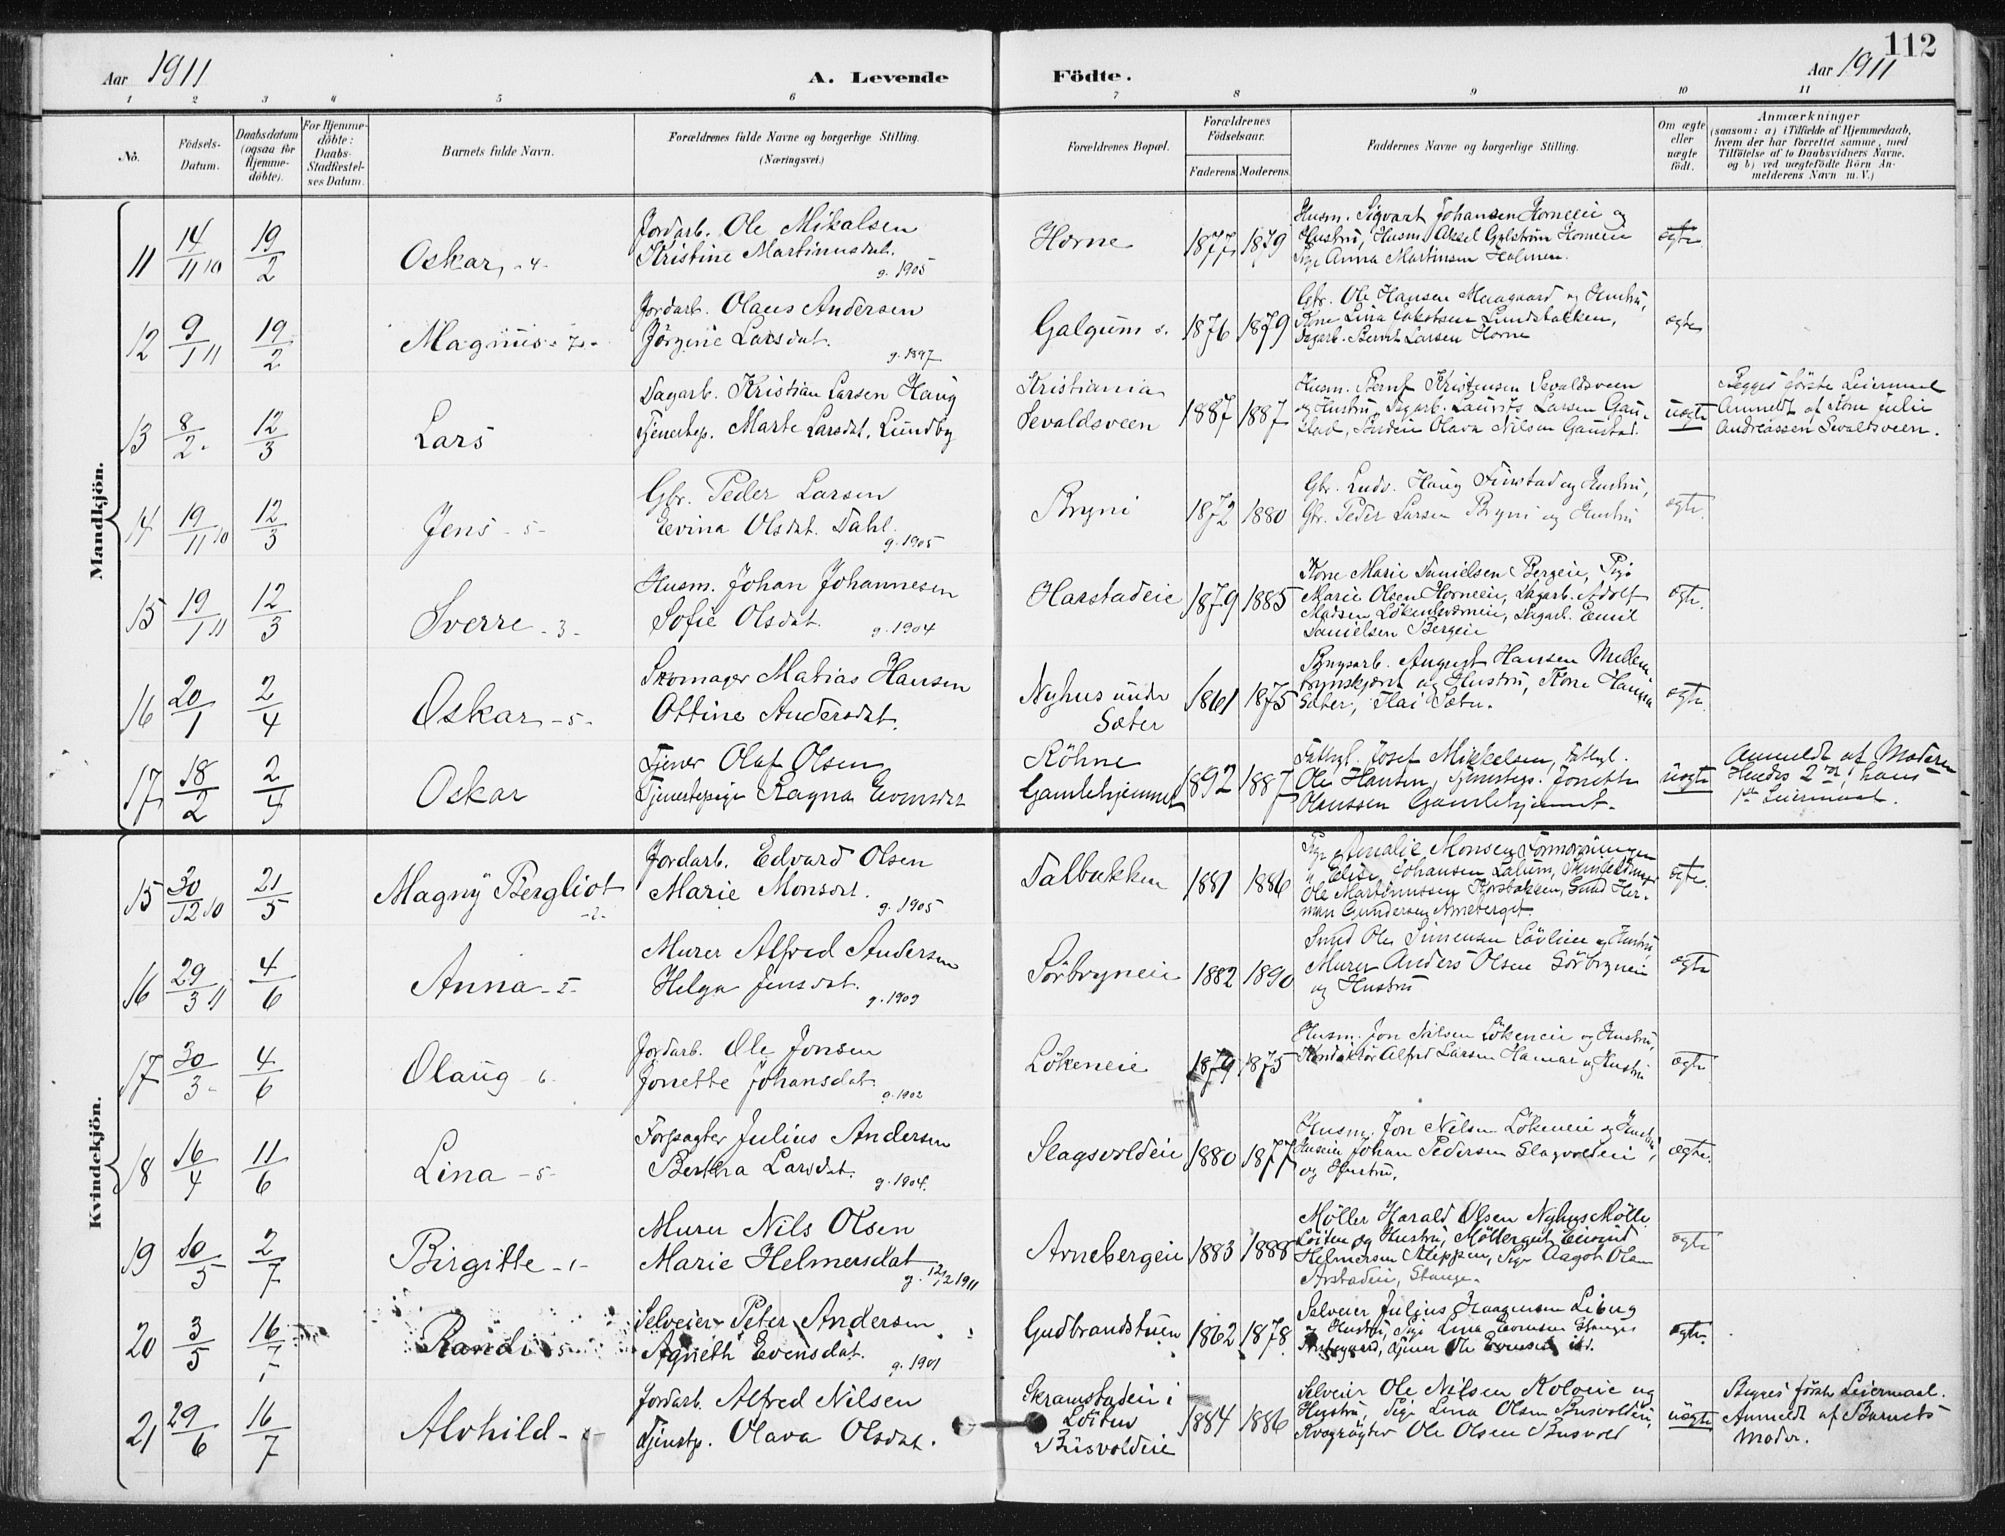 112
Aar 1911
A. Levende Födte.
Aar 1911
1 2 3 4 5 6 7 8 9 10 11
No.
Födsels-
Datum.
Daabsdatum
(ogsaa for
Hjemme-
döbte).
For Hjemme-
döbte:
Daabs-
Stadfæstel-
ses Datum.
Barnets fulde Navn.
Forældrenes fulde Navne og borgerlige Stilling.
(Næringsvei.)
Forældrenes Bopæl.
Forældrenes
Födselsaar.
Faderens Moderens
Faddernes Navne og borgerlige Stilling.
Om ægte
eller
uægte
födt.
Anmærkninger
(saasom: a) i Tilfælde af Hjemmedaab,
hvem der har forrettet samme, med
Tilföielse af to Daabsvidners Navne,
og b) ved uægtefödte Börn An-
melderens Navn m. V.)
Mandkjön.
11 14/11 10 19/2 Oskar, -4-
Jordarb. Ole Mikalsen
Kristine Martinusdat.
g. 1905
Horne 1877 1879
Husm. Sigvart Johansen Horneeie og
Hustru, Husm. Aksel Horneeie
Pige Anna Martinsen Holmen.
ægte
12 9/1 11 19/2 Magnus -7-
Jordarb. Olaus Andersen
Jörgine Larsdat.
g. 1897
Galgum s. 1876 1879
Gbr. Ole Hansen og Hustru,
Kone Lina Jakobsen Lundbakken,
Dagarb. Larsen Horne
ægte
13 8/2 12/3 Lars
Dagarb. Kristian Larsen Haug
Tjenestep. Marte Larsdat. Lundby
Kristiania
Sevaldsveen 1887 1887
Husm. Bernt Kristensen Sevaldsveen
og Hustru, Dagarb. Laurits Larsen Gau-
stad, Budeie Olava Nilsen Gaustad.
uægte
Begges förste Leiermaal
Anmeldt af Kone Julie
Andreassen Sevaltsveen.
14 19/11 10 12/3 Jens -5-
Gbr. Peder Larsen
Evina Olsdat. Dahl.
g. 1905
Bryni 1872 1880
Gbr. Ludv. Haug Finstad og Hustru,
Gbr. Peder Larsen Bryni og Hustru
ægte.
15 19/1 11 12/3 Sverre -3-
Husm. Johan Johannesen
Sofie Olsdat.
g. 1904
Harstadeie 1879 1885
Kone Marie Danielsen Bergeie, Pige
Marie Olsen Horneeie, Dagarb. Adolf
Madsen, Dagarb. Emil
Danielsen Bergeie
ægte.
16 20/1 2/4 Oskar -5-
Skomager Matias Hansen
Ottine Andersdat.
Nyhus under
Sæter 1861 1875
Brugsarb. August Hansen
og Hustru, Kone Hanna
Sæter,
ægte.
17 18/2 2/4 Oskar
Tjener Olaf Olsen
Tjenestepige Ragna Evensdat
Röhne
Gamlehjemmet 1892 1887
Fattigl. Josef Mikkelsen, Fattigl.
Ole Hansen, Tjenestep. Jonette
Olaussen Gamlehjemmet.
uægte
Anmeldt af Moderen
Hendes 2det, hans
1ste Leiermaal.
Kvindekjön.
15 30/12 10 21/5 Magny Bergliot
-2-
Jordarb. Edvard Olsen
Marie Monsdat.
g. 1905
Dalbakken 1881 1886
Pige Amalie Monsen
" Elise Johansen Lalum,
Ole Martinussen, Smed Her-
man Gundersen Arneberget.
ægte.
16 29/3 11 4/6 Anna -2-
Murer Alfred Andersen
Helga Jensdat.
g. 1909
Sörbryneie 1882 1890
Smed Ole Simensen Lövlien og Hustru,
Murer Anders Olsen Sörbryneie
og Hustru
ægte
17 30/3 4/6 Olaug -6.
Jordarb. Ole Jonsen
Jonette Johansdat.
g. 1902
Lökeneie 1879 1875
Husm. Jon Nilsen Lökeneie og Hustru,
Konduktör Alfred Larsen Hamar og Hustru
ægte
18 16/4 11/6 Lina -5-
Forpagter Julius Andersen
Bertha Larsdat.
g. 1904.
Slagsvoldeie 1880 1877
Husm. Jon Nilsen Lökeneie og Hustru,
Johan Pedersen Slagsvoldeie
og Hustru.
ægte.
19 10/5 2/7 Birgitte -1-
Murer Nils Olsen
Marie Helmersdat
g. 12/2 1911
Arnebergeie 1883 1888
Möller Harald Olsen Nyhus Mölle
Löiten og Hustru, Möllergut Eivind
Helmersen Kleppen, Pige Aagot Olsen
Arstadeie, Stange.
ægte
20 3/5 16/7 Randi -5-
Selveier Peter Andersen
Agneth Evensdat.
g. 1901
Gudbrandstuen 1862 1878
Selveier Julius Haagensen Liberg
og Hustru, Pige Lina Evensen Stanges
tjener Ole Evensen ibd.
ægte.
21 29/6 16/7 Alvhild -
Jordarb. Alfred Nilsen
Tjenstp. Olava Olsdat.
Skramstadeie i
Löiten
Busvoldeie 1884 1886
Selveier Ole Nilsen Koloeie og
Hustru, Pige Lina Olsen Busvoldeie,
Kvægrögter Ole Olsen Busvold
uægte
Begges förste Leiermaal.
Anmeldt af Barnets
Moder.